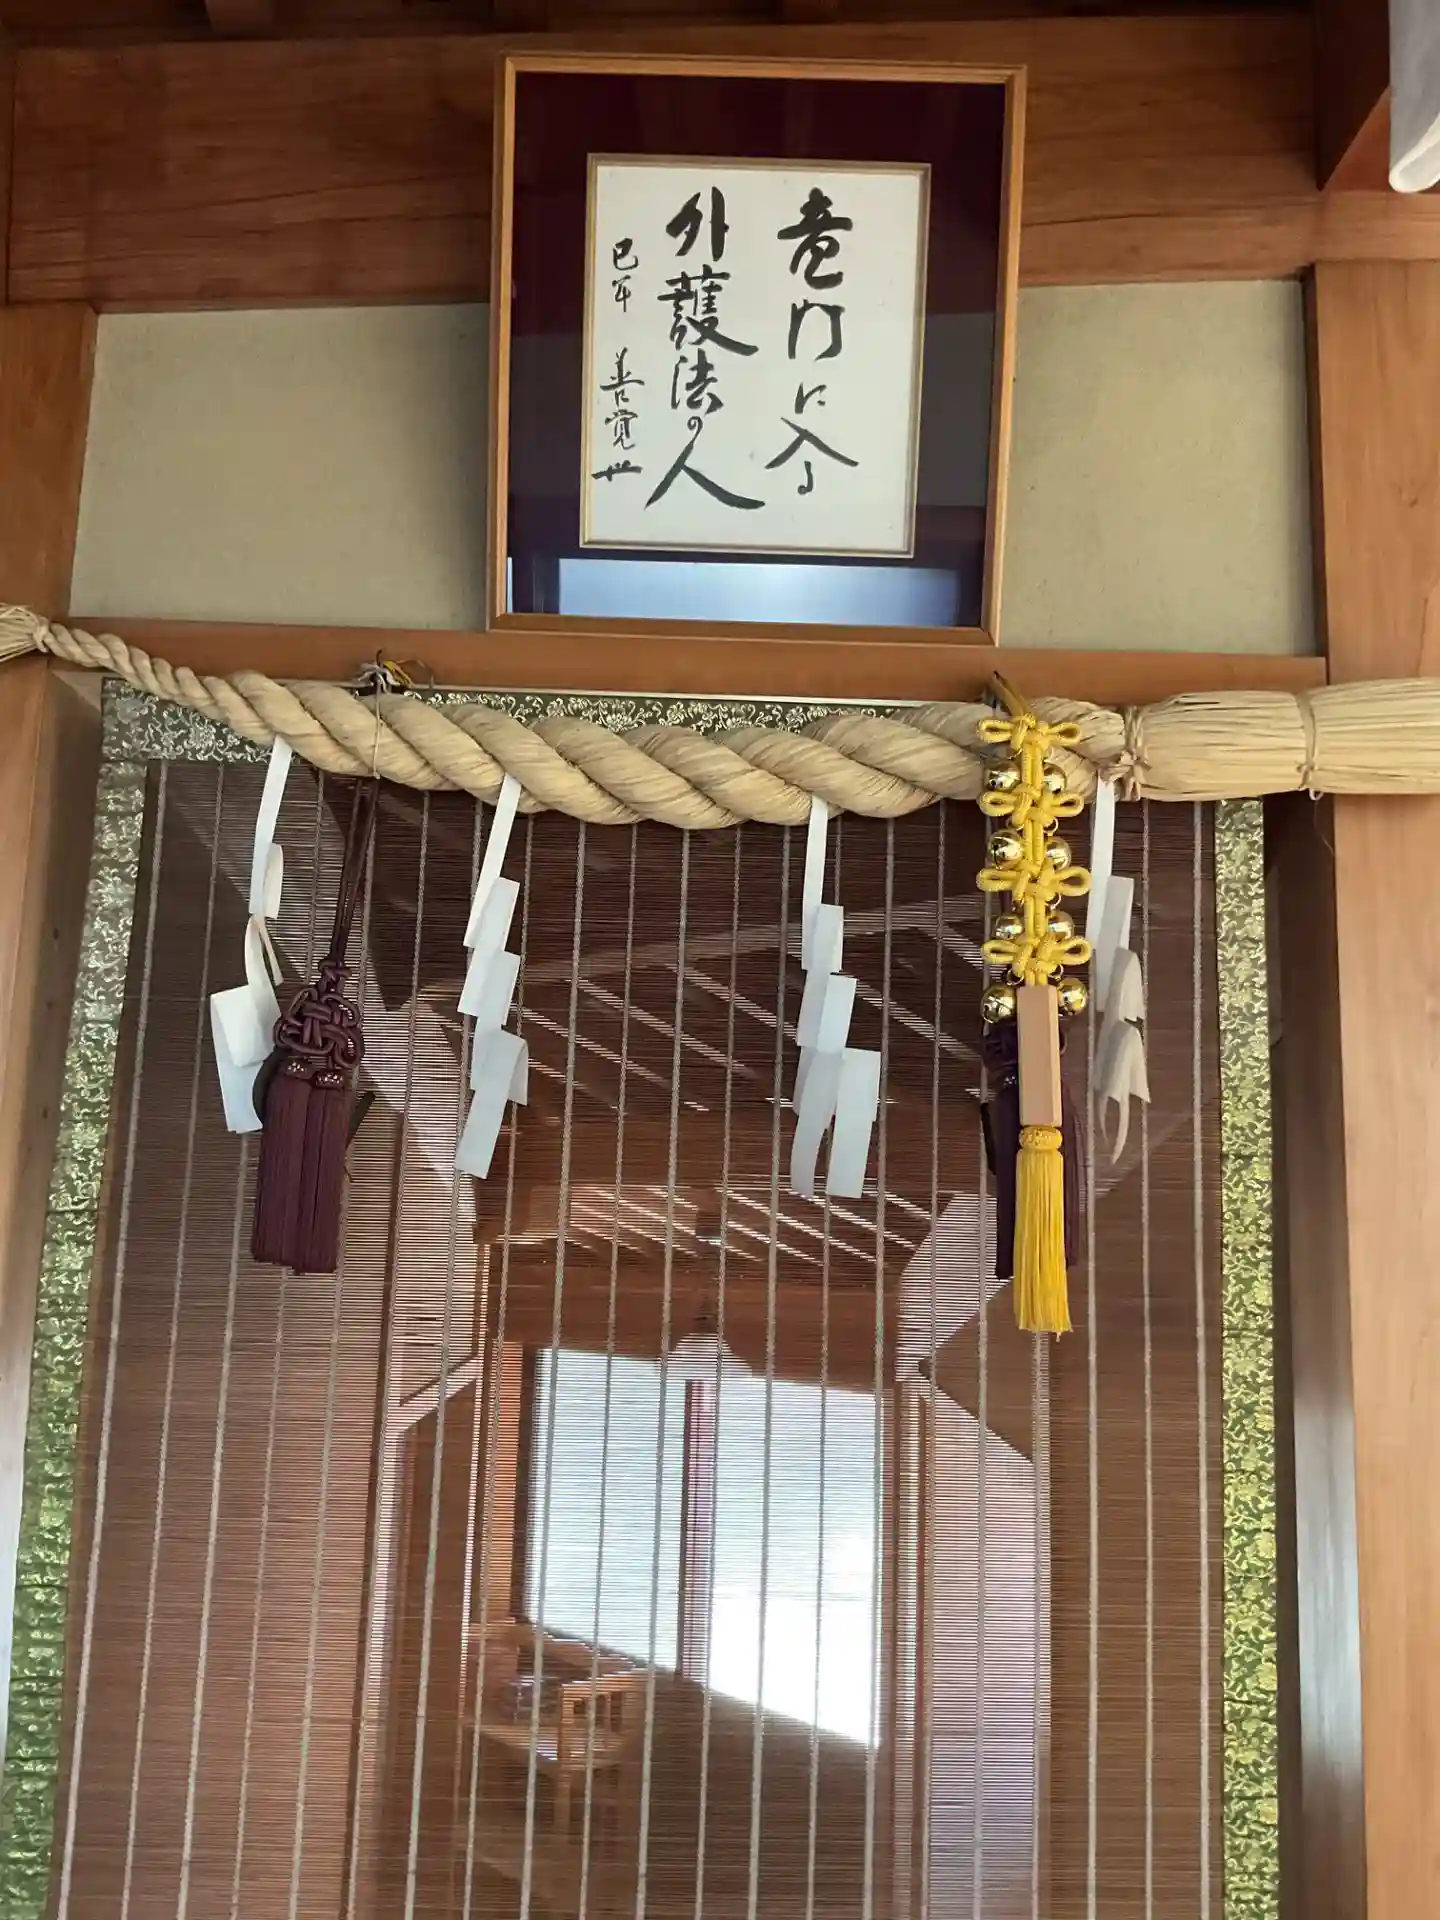 竜門に入る
外護法の人
巳年 善覚世